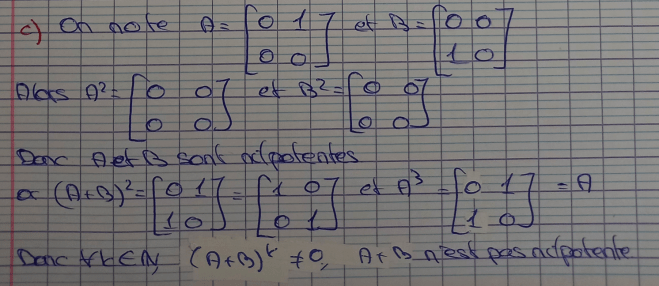 c) On note A = [0 1; 0 0] et B = [0 0; 1 0]
Alors A² = [0 0; 0 0] et B² = [0 0; 0 0]
Donc A et B sont nilpotentes
or (A+B)² = [0 1; 1 0] = [1 0; 0 1] et A³ = [0 1; 1 0] = A
Donc ∀k∈ℕ, (A+B)ᵏ ≠ 0, A+B n'est pas nilpotente